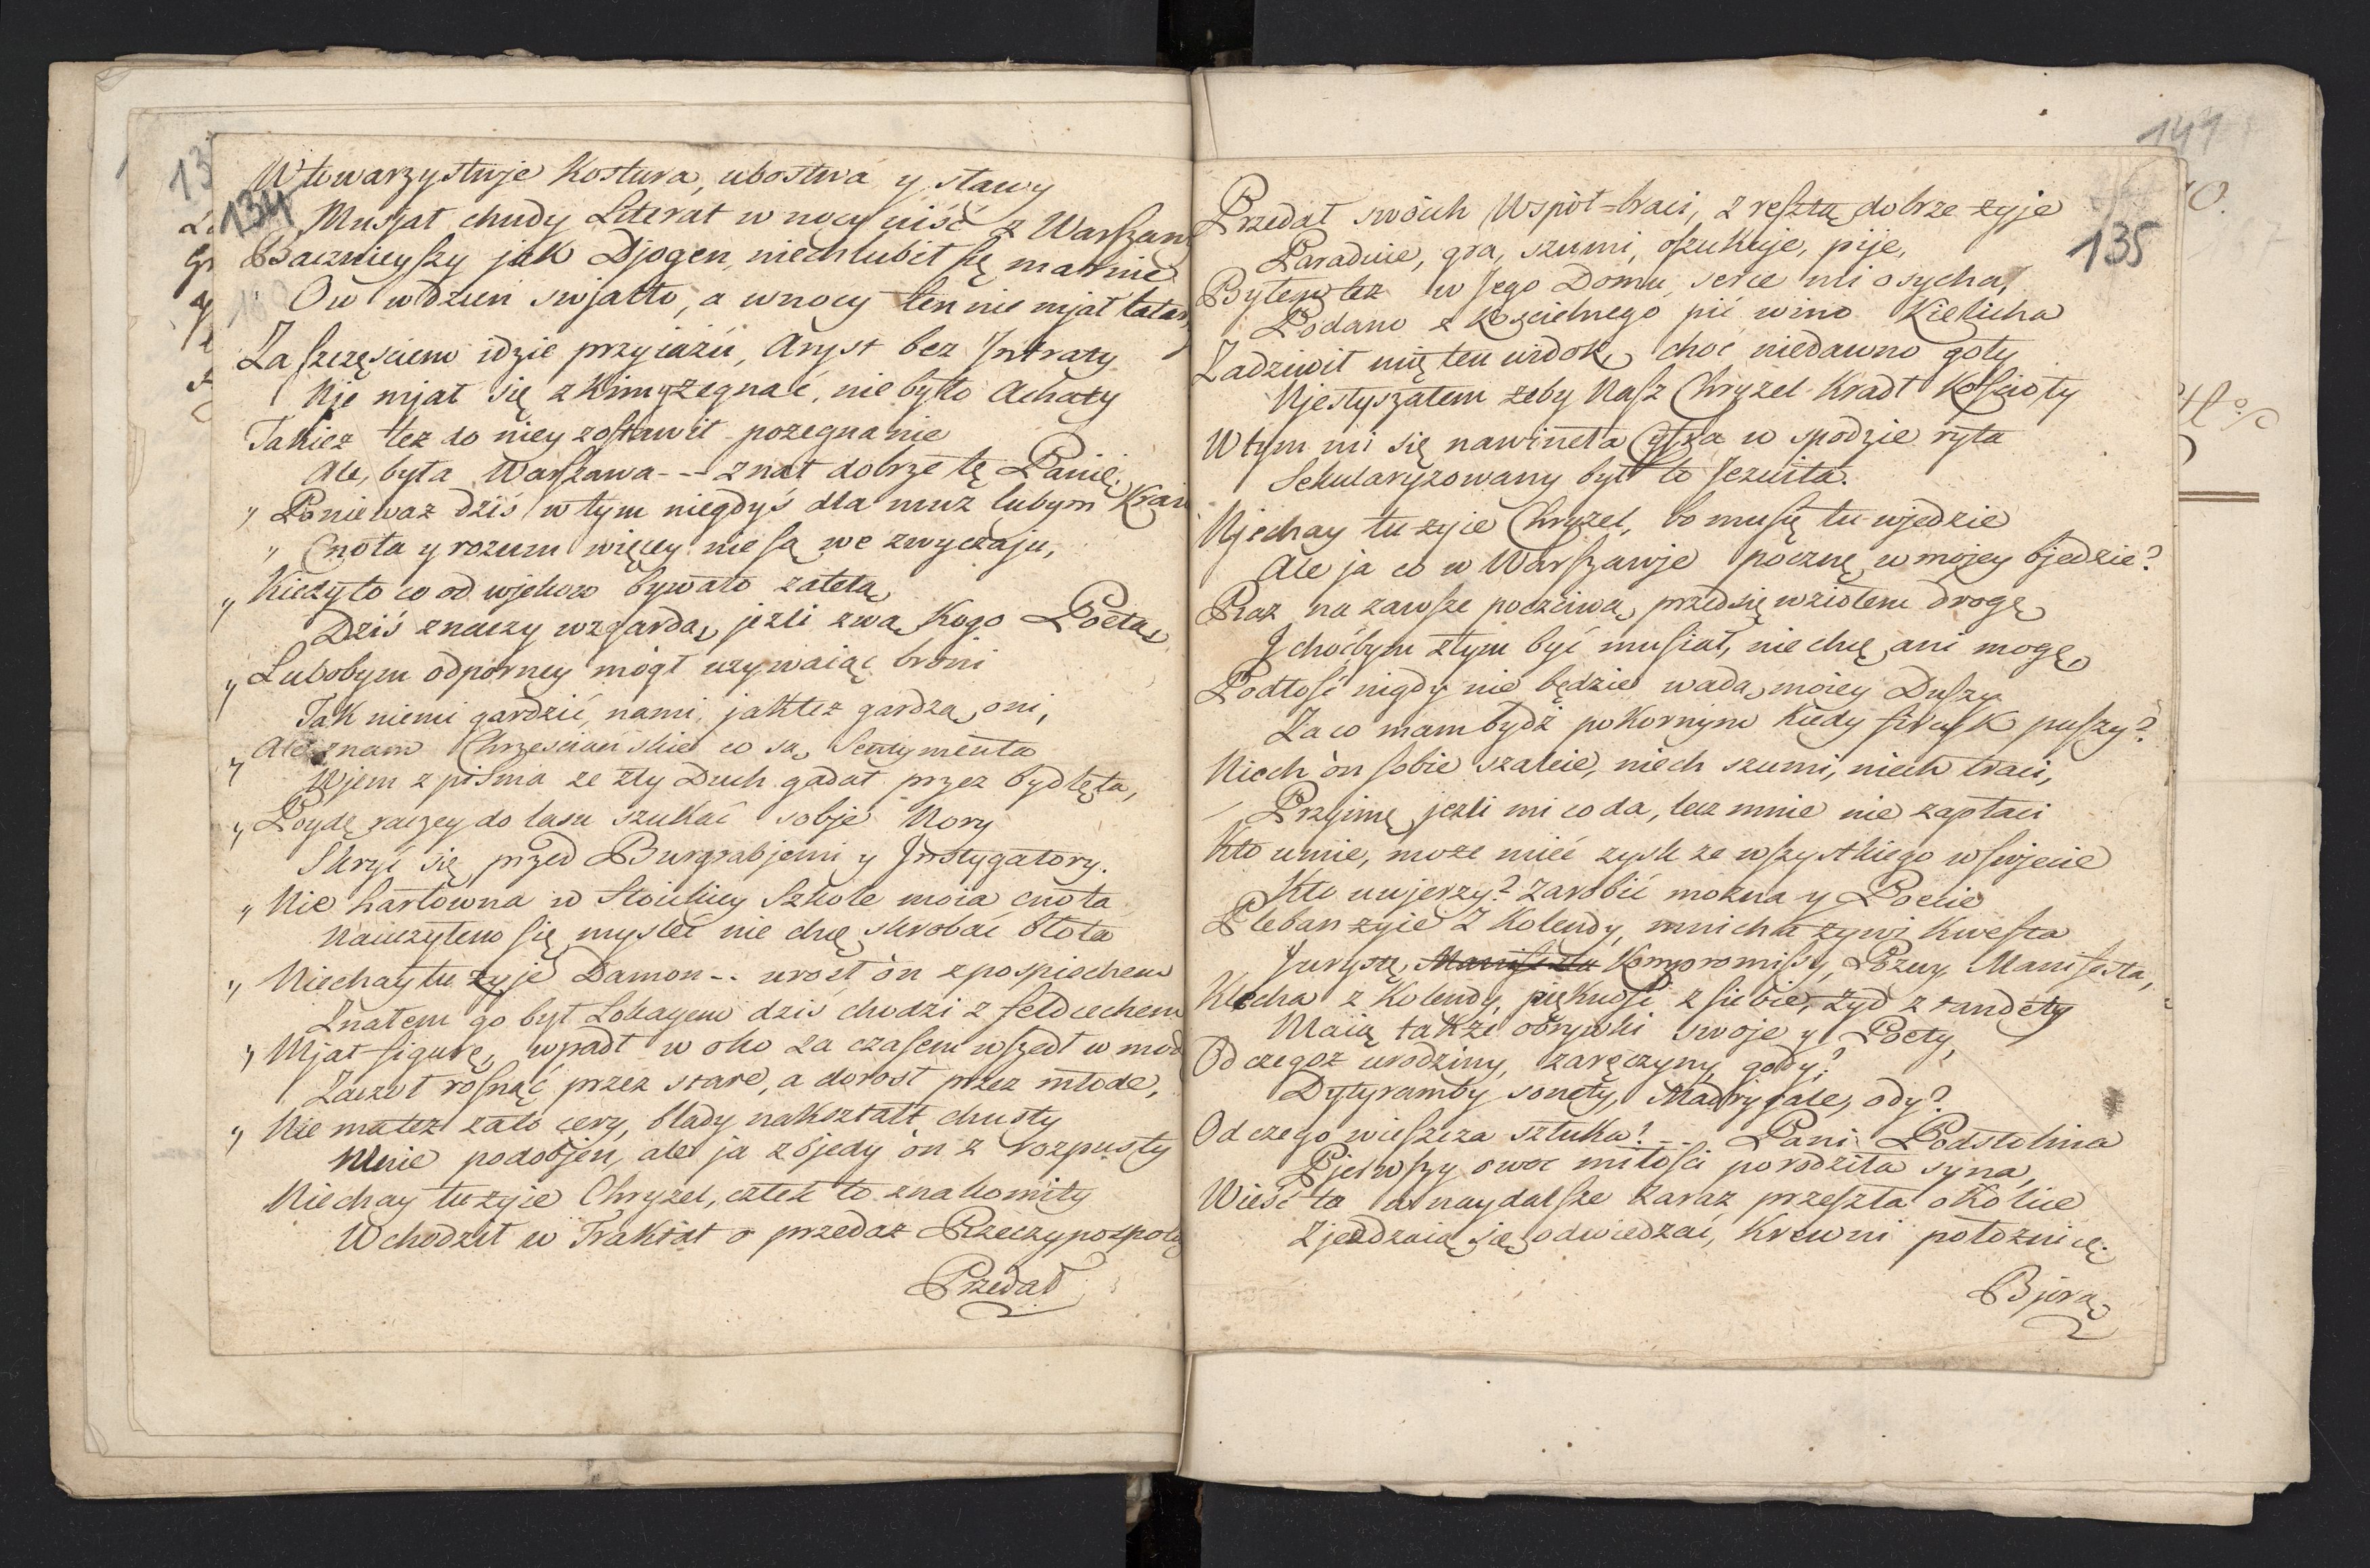 134
W towarzystwje Kostura, ubostwa y sławy
Musjał chudy Literat w nocy iiść z Warszaw
Bacznieyszy jak Djogen, niechlubił się marnie
Ów w dzień swjatło, a w nocy ten nie mjał latar
Za szczęściem idzie przyiaźń, Aryst bez Intraty
Nje mjał się z kim pożegnać, nie było Achaty
Takież też do niey zostawił pożegnanie
Ale, była Warszawa -- znał dobrze tę Panię.
„ Ponieważ dziś w tym niegdyś dla muz lubym Krai
„ Cnota y rozum więcey nie są we zwyczaju,
„ Kiedy to co od wjekow bywało zaletą
Dziś znaczy wzgardą, jezli zwą Kogo Poetą,
„ Lubobym odporney mógł uzywaiąc broni
Tak niemi gardzić, nami, jak też gardzą oni,
„ Ale znam Chrześciańskie co są Sentymenta
Wjem z pisma ze zły Duch gadał przez bydlęta,
„ Poydę raczey do lasu szukać sobje Nory
Skryć się przed Burgrabjemi y Instygatory.
„ Nie hartowna w Stoickiey Szkole moia cnota
Nauczyłem się mysleć nie chcę skrobać błota
„ Niechay tu żyje Damon -- urosł ón z pospiechem
Znałem go był Lokayem dziś chodzi z feldcechem
„ Mjał figurę, wpadł w oko za czasem wszedł w mod
Zaczoł rosnąć przez stare, a dorosł przez młode,
„ Nie ma też zato cery, blady nakształt chusty
Mnie podobjen, ale ja z bjedy ón z rozpusty
Niechay tu żyie Chryzel, człek to znakomity
Wchodził w Traktat o przedaż Rzeczypospoli
Przedał
144
135
Przedał swóich Współ=braci, z resztą dobrze żyje
Paraduie, gra, szumi, oszukuje, pije,
Byłem też w Jego Domu, serce mi osycha,
Podano z kościelnego pić wino Kielicha
Zadziwił mię ten widok, choć niedawno goły
Nje słyszałem żeby Nasz Chryzel Kradł Kościoły
W tym mi się nawineła Cyfra w spodzie ryta
Sekularyzowany był to Jezuita.
Njechay tu żyie Chryzel, bo mu się tu wjedzie
Ale ja co w Warszawje pocznę w mojey bjedzie?
Raz na zawsze poczciwą przedsięwziołem drogę
I choćbym złym być musiał, nie chcę ani mogę,
Podłość nigdy nie będzie wadą moiey Duszy
Za co mam bydź pokornym kiedy fircyk puszy?
Niech ón sobie szaleie, niech szumi, niech traci,
Przyimę jezli mi co da, lecz mnie nie zapłaci
Kto umie, może mieć zysk ze wszystkiego w świecie
Kto uwjerzy? zarobić można y Poecie
Pleban żyie z Kolendy, mnicha żywi Kwesta
Jurystę, Manifesta Kompromissy, Pozwy, Manifesta,
Klecha z Kolendy, piękność z siebie, żyd z tandety
Maią także obrywki swoje y Poety,
Od czegoż urodziny, zaręczyny, gody?
Dytyramby, sonety, Madrygale, ody?
Od czego wieszcza sztuka? -- Pani Podstolina
Pjerwszy owoc miłości porodziła syna,
Wieść ta w naydalsze zaraz przeszła okolice
Zjeżdżaią się odwiedzać, Krewni położnicę.
Bjorą